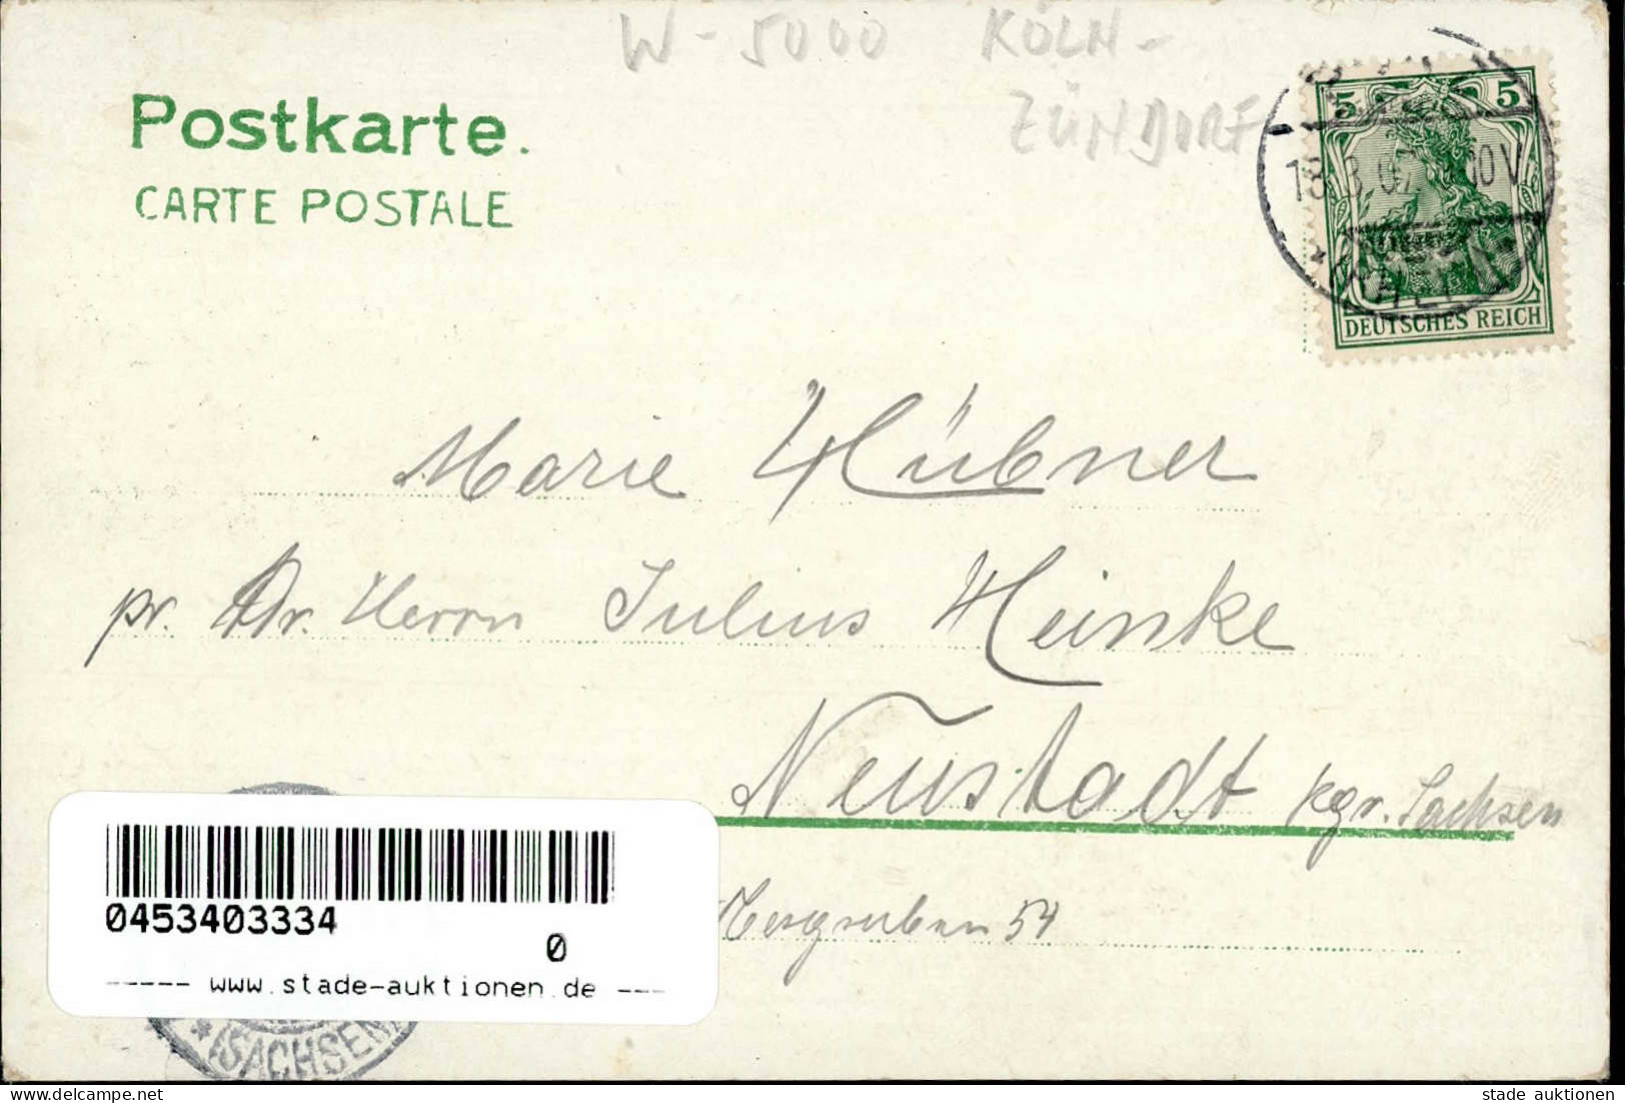 W - 5000 KÖLN -
ZÜNDORF
Postkarte.
CARTE POSTALE
5 5
18.3.07. 00V
DEUTSCHES REICH
Marie Hübner
pr. Adr. Herrn Julius Heinke
Neustadt kgr. Sachsen
54
0453403334
0
----- www.stade-auktionen.de ---
(SACHSEN)
stade auktionen